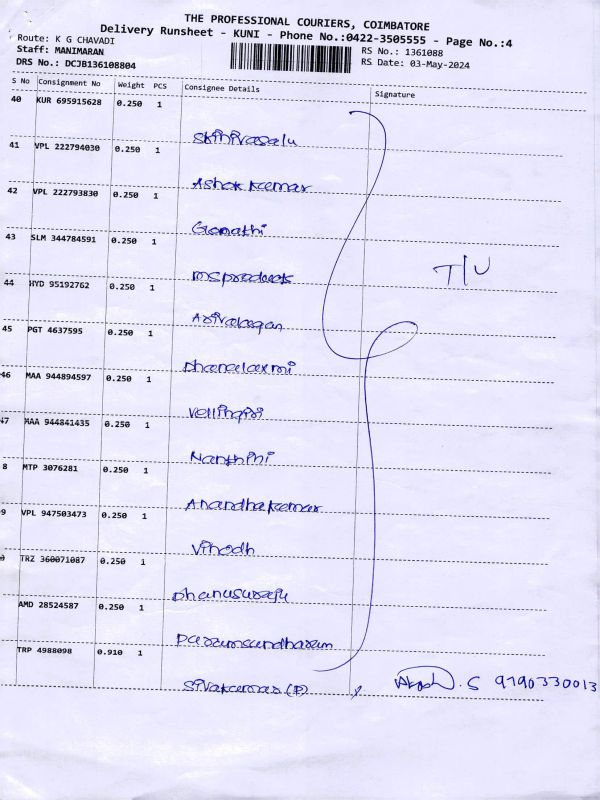 THE PROFESSIONAL COURIERS, COIMBATORE
Delivery Runsheet - KUNI - Phone No.:0422-3505555 - Page No.:4
Route: K G CHAVADI
RS No.: 1361088
Staff: MANIMARAN
RS Date: 03-May-2024
DRS No.: DCJB136108804
S No Consignment No Weight PCS Consignee Details Signature
40 KUR 695915628 0.250 1
41 VPL 222794030 0.250 1
Ashok kumar
42 VPL 222793830 0.250 1
Gomathi
43 SLM 344784591 0.250 1
T/U
44 HYD 95192762 0.250 1
Arivalagan
45 PGT 4637595 0.250 1
Dhanalaxmi
46 MAA 944894597 0.250 1
Vellingiri
47 MAA 944841435 0.250 1
Nanthini
8 MTP 3076281 0.250 1
Anandhakumar
9 VPL 947503473 0.250 1
Vinodh
TRZ 360071087 0.250 1
Dhanusuraju
AMD 28524587 0.250 1
Paramsundharam
TRP 4988098 0.910 1
Sivakumar (P) Akash . S 9790330013